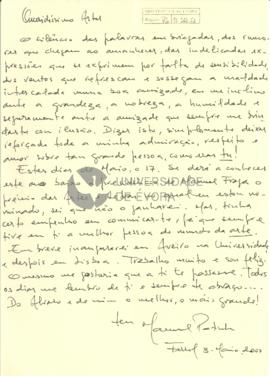 Queridíssimo Artur
O silêncio das palavras embriagadas, dos rumo-
res que chegam ao amanhecer, das indelicadas ex-
pressões que se exprimem por falta de sensibilidade,
dos ventos que refrescam e sossegam a
numa sua amizade, eu me inclino
ante a grandeza, a nobreza, a humildade e
a amizade que sempre me brin-
daste com ilusão. Digo isto, simplesmente deixas
reforçado toda a minha admiração, respeito e
amor sobre tão grande pessoa, como és tu!
Estes dias de Maio, o 17. Se dará a conhecer
este ano
prémio das Artes também estou no-
minado, sei que não o ganharei. Mas, tinha
certo empenho em comunicar-te, já que sempre
tive em ti a melhor pessoa do mundo da arte.
Em breve inaugurarei em Aveiro na Universidade
e depois em Lisboa. Trabalho muito e sou feliz.
O mesmo me gostaria que a ti te passasse. Todos
os dias me lembro de ti e sempre te abraço...
Do Álvaro e de mim o melhor, o mais grande!
teu Manuel
3-Maio-2000
UNIVERSIDADE
DE ÉVORA